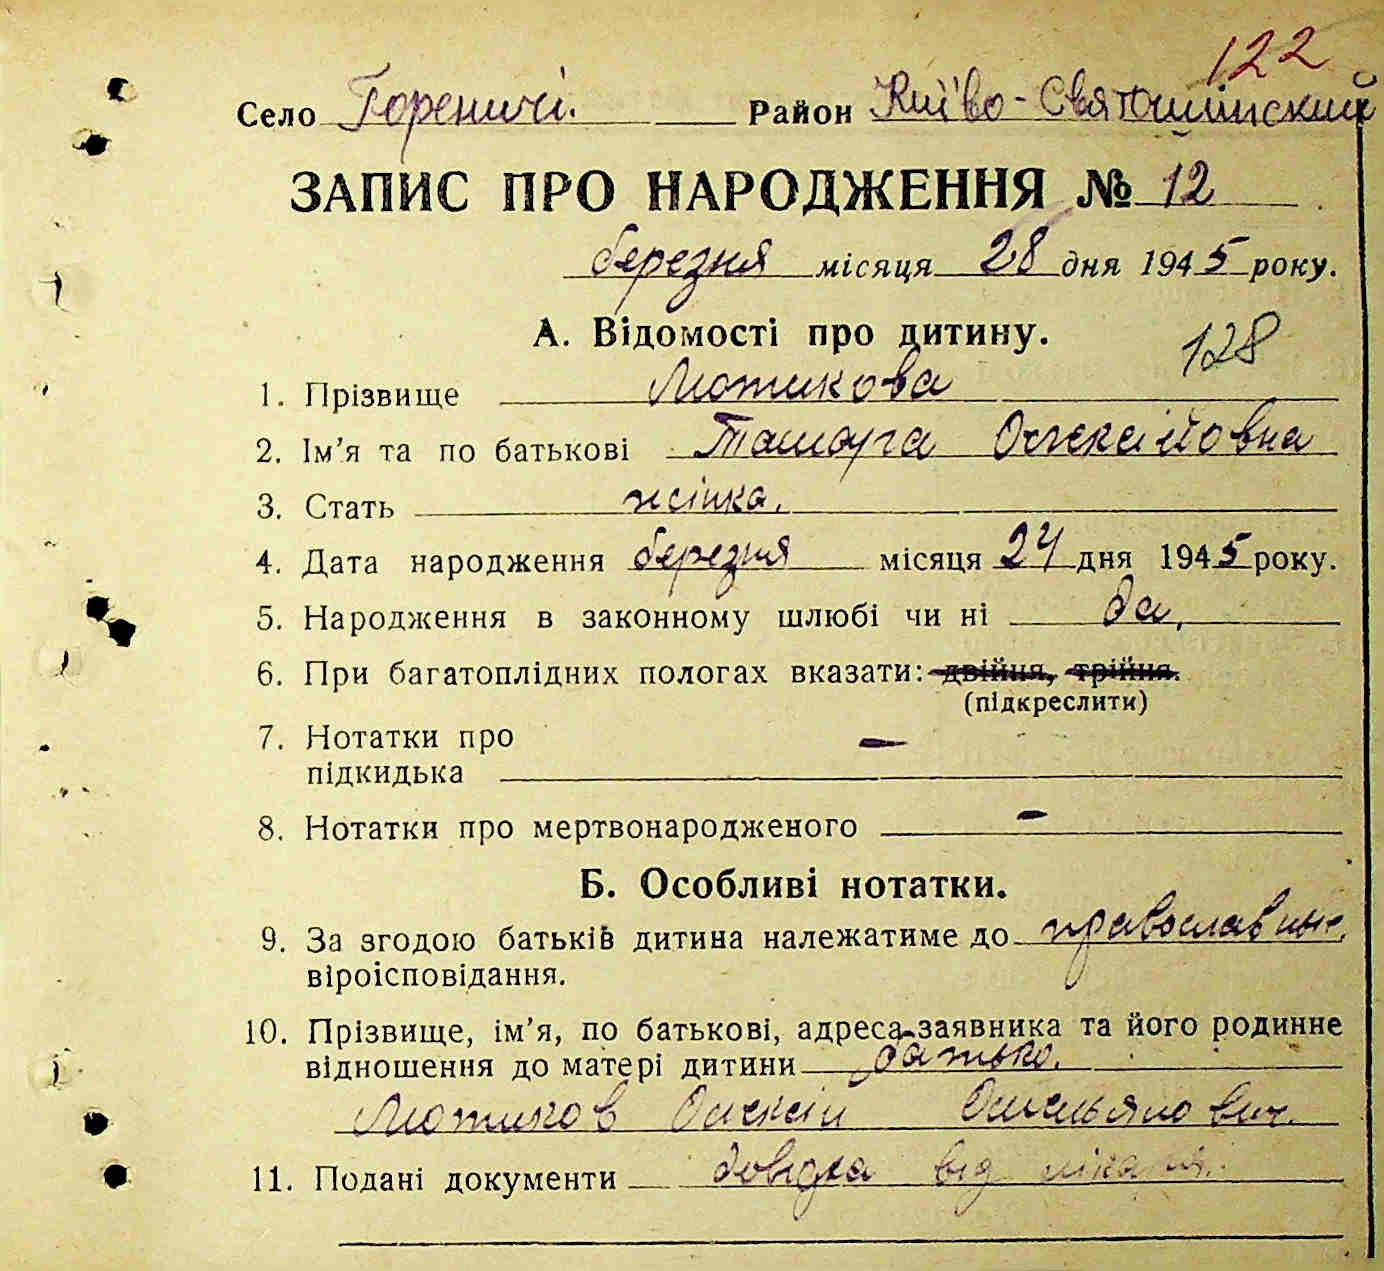 122
Село Гореничі. Район Київо-Святошинский
ЗАПИС ПРО НАРОДЖЕННЯ № 12
березня місяця 28 дня 1945 року.
А. Відомості про дитину.
128
1. Прізвище Мотикова
2. Ім'я та по батькові Тамара Олексійовна
3. Стать жінка.
4. Дата народження березня місяця 24 дня 1945 року.
5. Народження в законному шлюбі чи ні да.
6. При багатоплідних пологах вказати: двійня, трійня.
(підкреслити)
7. Нотатки про
підкидька —
8. Нотатки про мертвонародженого —
Б. Особливі нотатки.
9. За згодою батьків дитина належатиме до
віроісповідання.
10. Прізвище, ім'я, по батькові, адреса заявника та його родинне
відношення до матері дитини батько.
Мотиков Олексій Омельянович.
11. Подані документи довідка від лікаря.